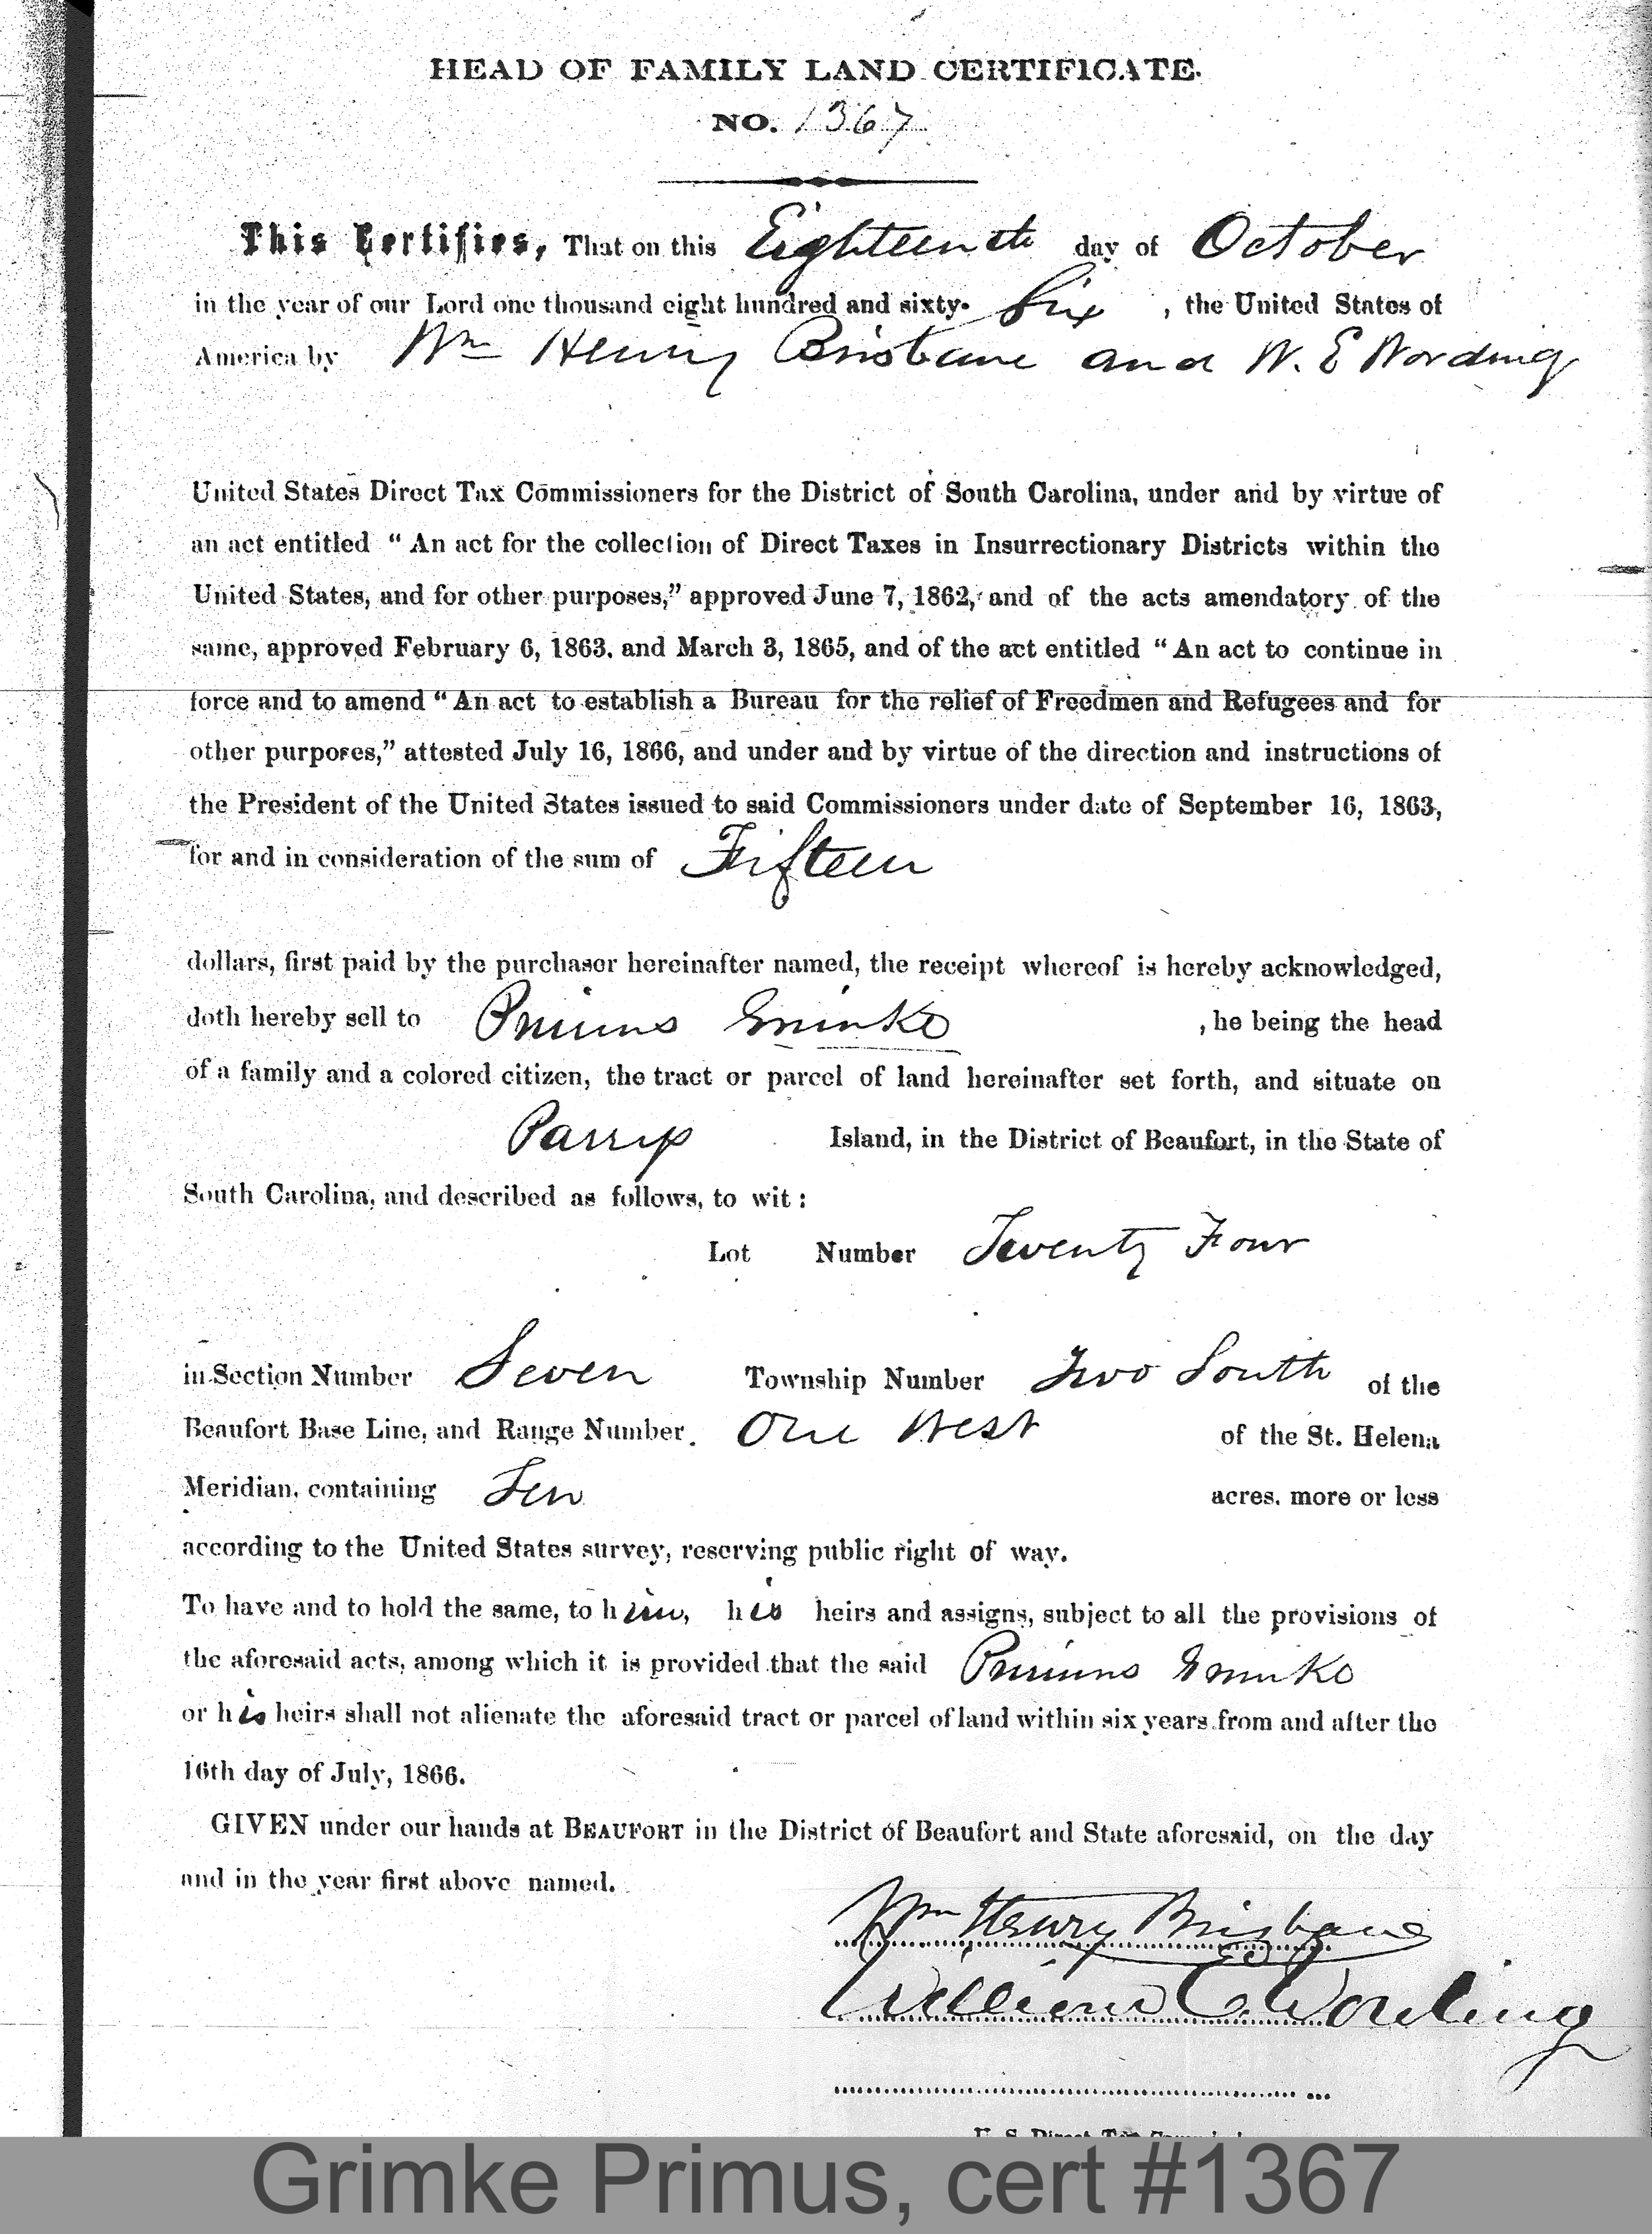 HEAD OF FAMILY LAND CERTIFICATE.
NO. 1367
This Certifies, That on this Eighteenth day of October
in the year of our Lord one thousand eight hundred and sixty- Six , the United States of
America by Wm Henry Brisbane and W. E Wording
United States Direct Tax Commissioners for the District of South Carolina, under and by virtue of
an act entitled “ An act for the collection of Direct Taxes in Insurrectionary Districts within the
United States, and for other purposes,” approved June 7, 1862, and of the acts amendatory of the
same, approved February 6, 1863. and March 3, 1865, and of the act entitled “ An act to continue in
force and to amend “ An act to establish a Bureau for the relief of Freedmen and Refugees and for
other purposes,” attested July 16, 1866, and under and by virtue of the direction and instructions of
the President of the United States issued to said Commissioners under date of September 16, 1863,
for and in consideration of the sum of Fifteen
dollars, first paid by the purchaser hereinafter named, the receipt whereof is hereby acknowledged,
doth hereby sell to Primus Grimke , he being the head
of a family and a colored citizen, the tract or parcel of land hereinafter set forth, and situate on
Parris Island, in the District of Beaufort, in the State of
South Carolina, and described as follows, to wit :
Lot Number Twenty Four
in Section Number Seven Township Number Two South of the
Beaufort Base Line, and Range Number. One West of the St. Helena
Meridian, containing Ten acres, more or less
according to the United States survey, reserving public right of way.
To have and to hold the same, to him, his heirs and assigns, subject to all the provisions of
the aforesaid acts, among which it is provided that the said Primus Grimke
or his heirs shall not alienate the aforesaid tract or parcel of land within six years from and after the
16th day of July, 1866.
GIVEN under our hands at BEAUFORT in the District of Beaufort and State aforesaid, on the day
and in the year first above named.
Wm Henry Brisbane
William E. Wording
U. S. Direct Tax
Grimke Primus, cert #1367